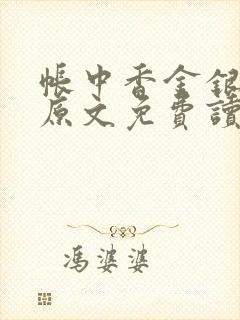 帳中香金銀
原文免費讀
馮婆婆